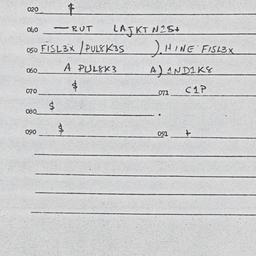 020 $
040 — RUT LAJKT N25+
050 FISL3X / PUL8K3S ). HINE FISL3X
060 A PUL8K3 A) 1ND1K8
070 $ 071 C1P
080 $ .
090 $ 091 +